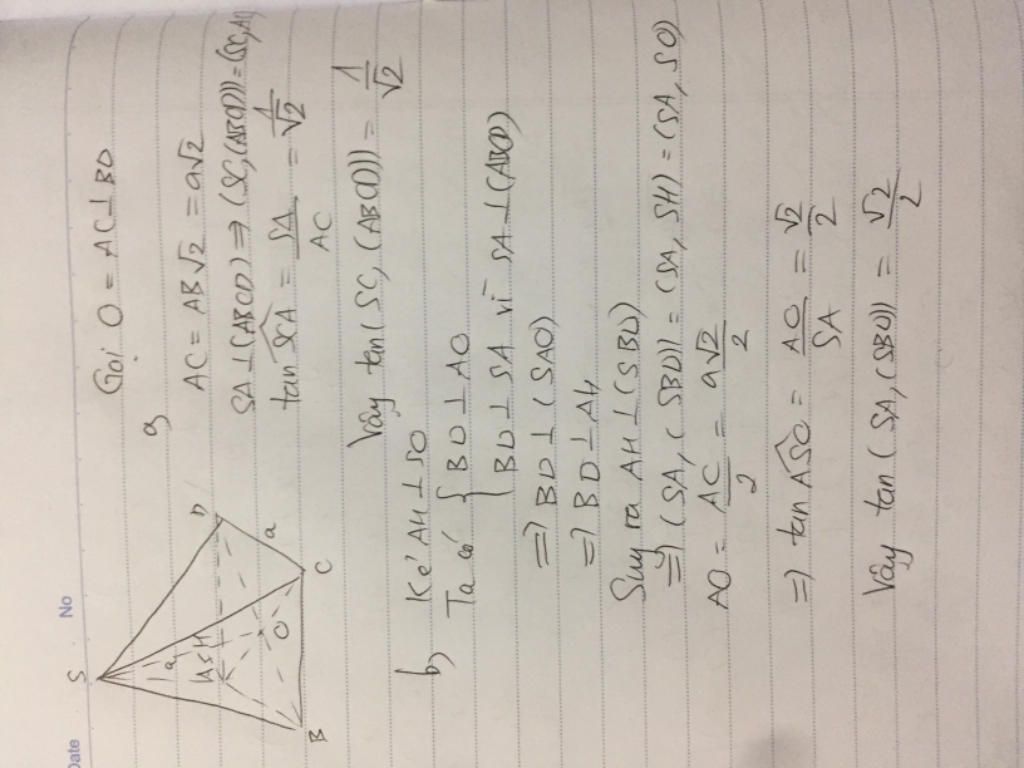 Date No
S
a
A
H
D
a
O
B
C
Gọi O = AC ⊥ BD
a,
AC = AB√2 = a√2
SA ⊥ (ABCD) ⇒ (SC, (ABCD)) = (SC, AC)
tan SCA = SA/AC = 1/√2
Vậy tan (SC, (ABCD)) = 1/√2
b, Kẻ AH ⊥ SO
Ta có { BD ⊥ AO
{ BD ⊥ SA vì SA ⊥ (ABCD)
⇒ BD ⊥ (SAO)
⇒ BD ⊥ AH
Suy ra AH ⊥ (SBD)
⇒ (SA, (SBD)) = (SA, SH) = (SA, SO)
AO = AC/2 = a√2/2
⇒ tan ASO = AO/SA = √2/2
Vậy tan (SA, (SBD)) = √2/2